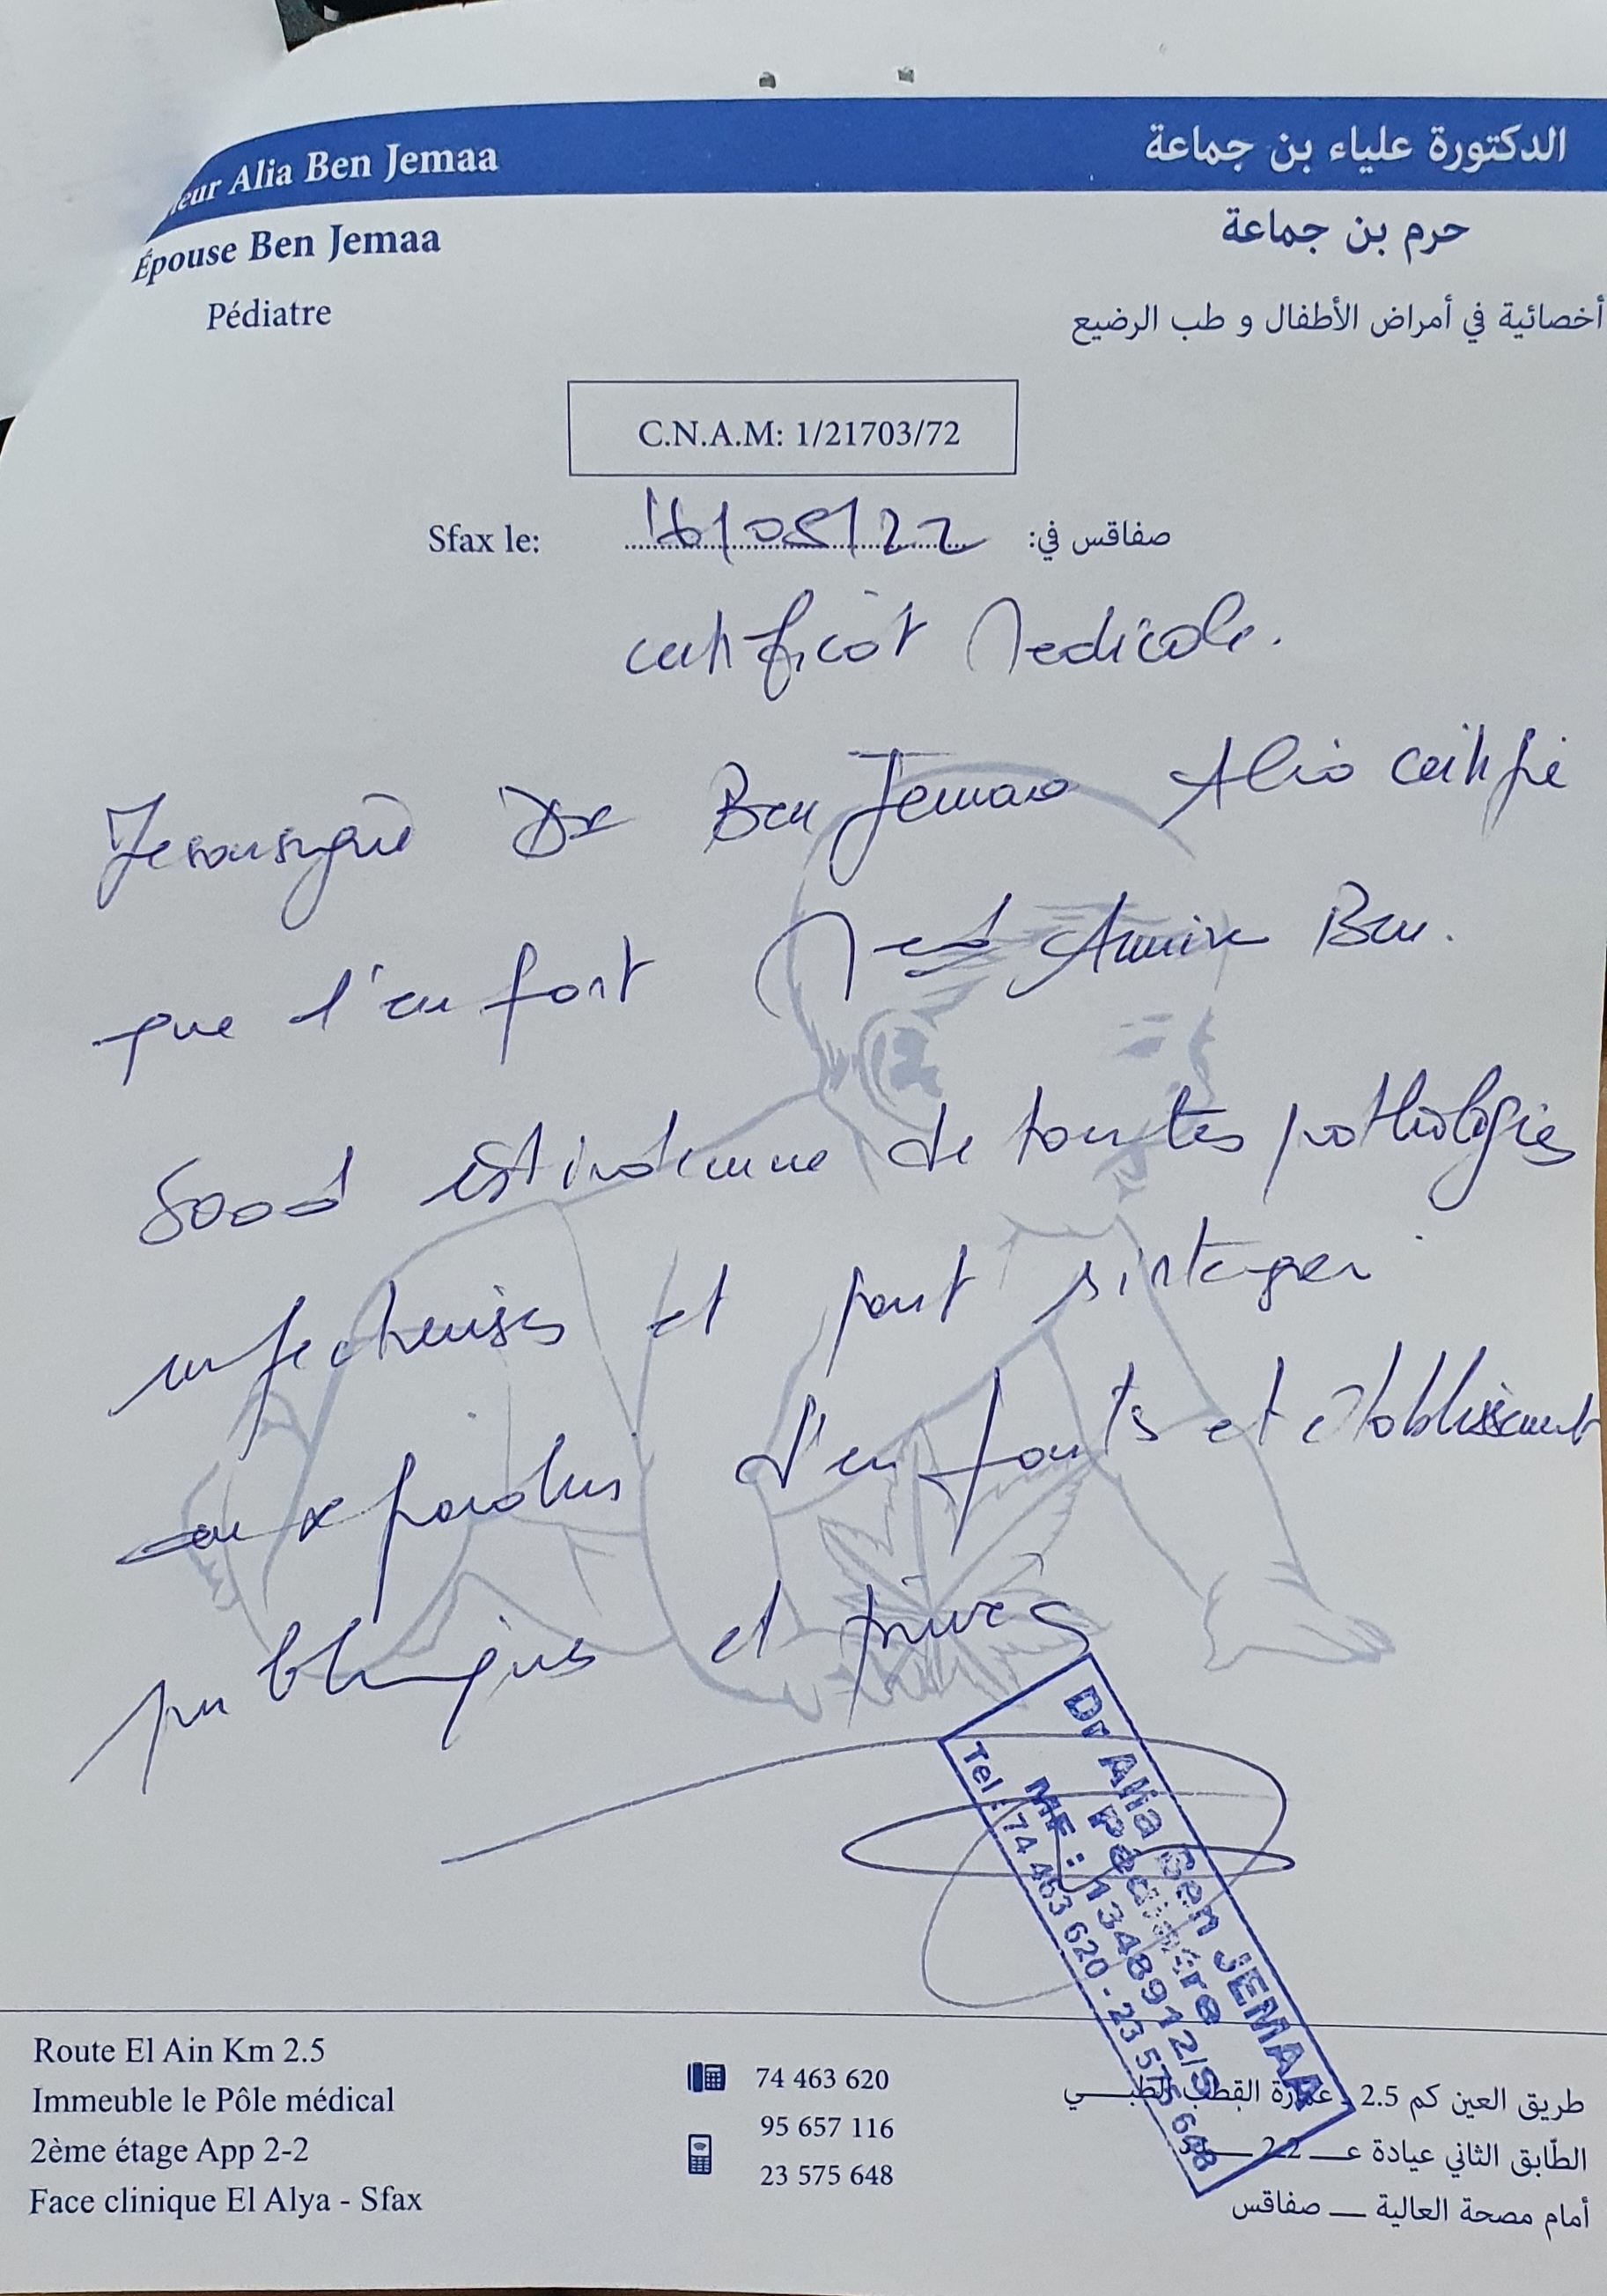 eur Alia Ben Jemaa
الدكتورة علياء بن جماعة
Épouse Ben Jemaa
حرم بن جماعة
Pédiatre
أخصائية في أمراض الأطفال و طب الرضيع
C.N.A.M: 1/21703/72
Sfax le: 16/05/22 صفاقس في:
certificat Medicale.
Je soussigné Dr Ben Jemaa Alia certifie
que l'enfant Med Amine Ben.
Saad est indemne de toutes pathologies
infectieuses et peut s'integrer
aux jardins d'enfants et établissement
publiques et privés
Dr Alia Ben JEMAA
Pédiatre
MF : 1348912/S
Tel : 74 463 620 - 23 575 648
Route El Ain Km 2.5
Immeuble le Pôle médical
2ème étage App 2-2
Face clinique El Alya - Sfax
74 463 620
95 657 116
23 575 648
طريق العين كم 2.5 عمارة القطب الطبي
الطّابق الثاني عيادة عـــ 2.2 ـــدد
أمام مصحة العالية ـــ صفاقس